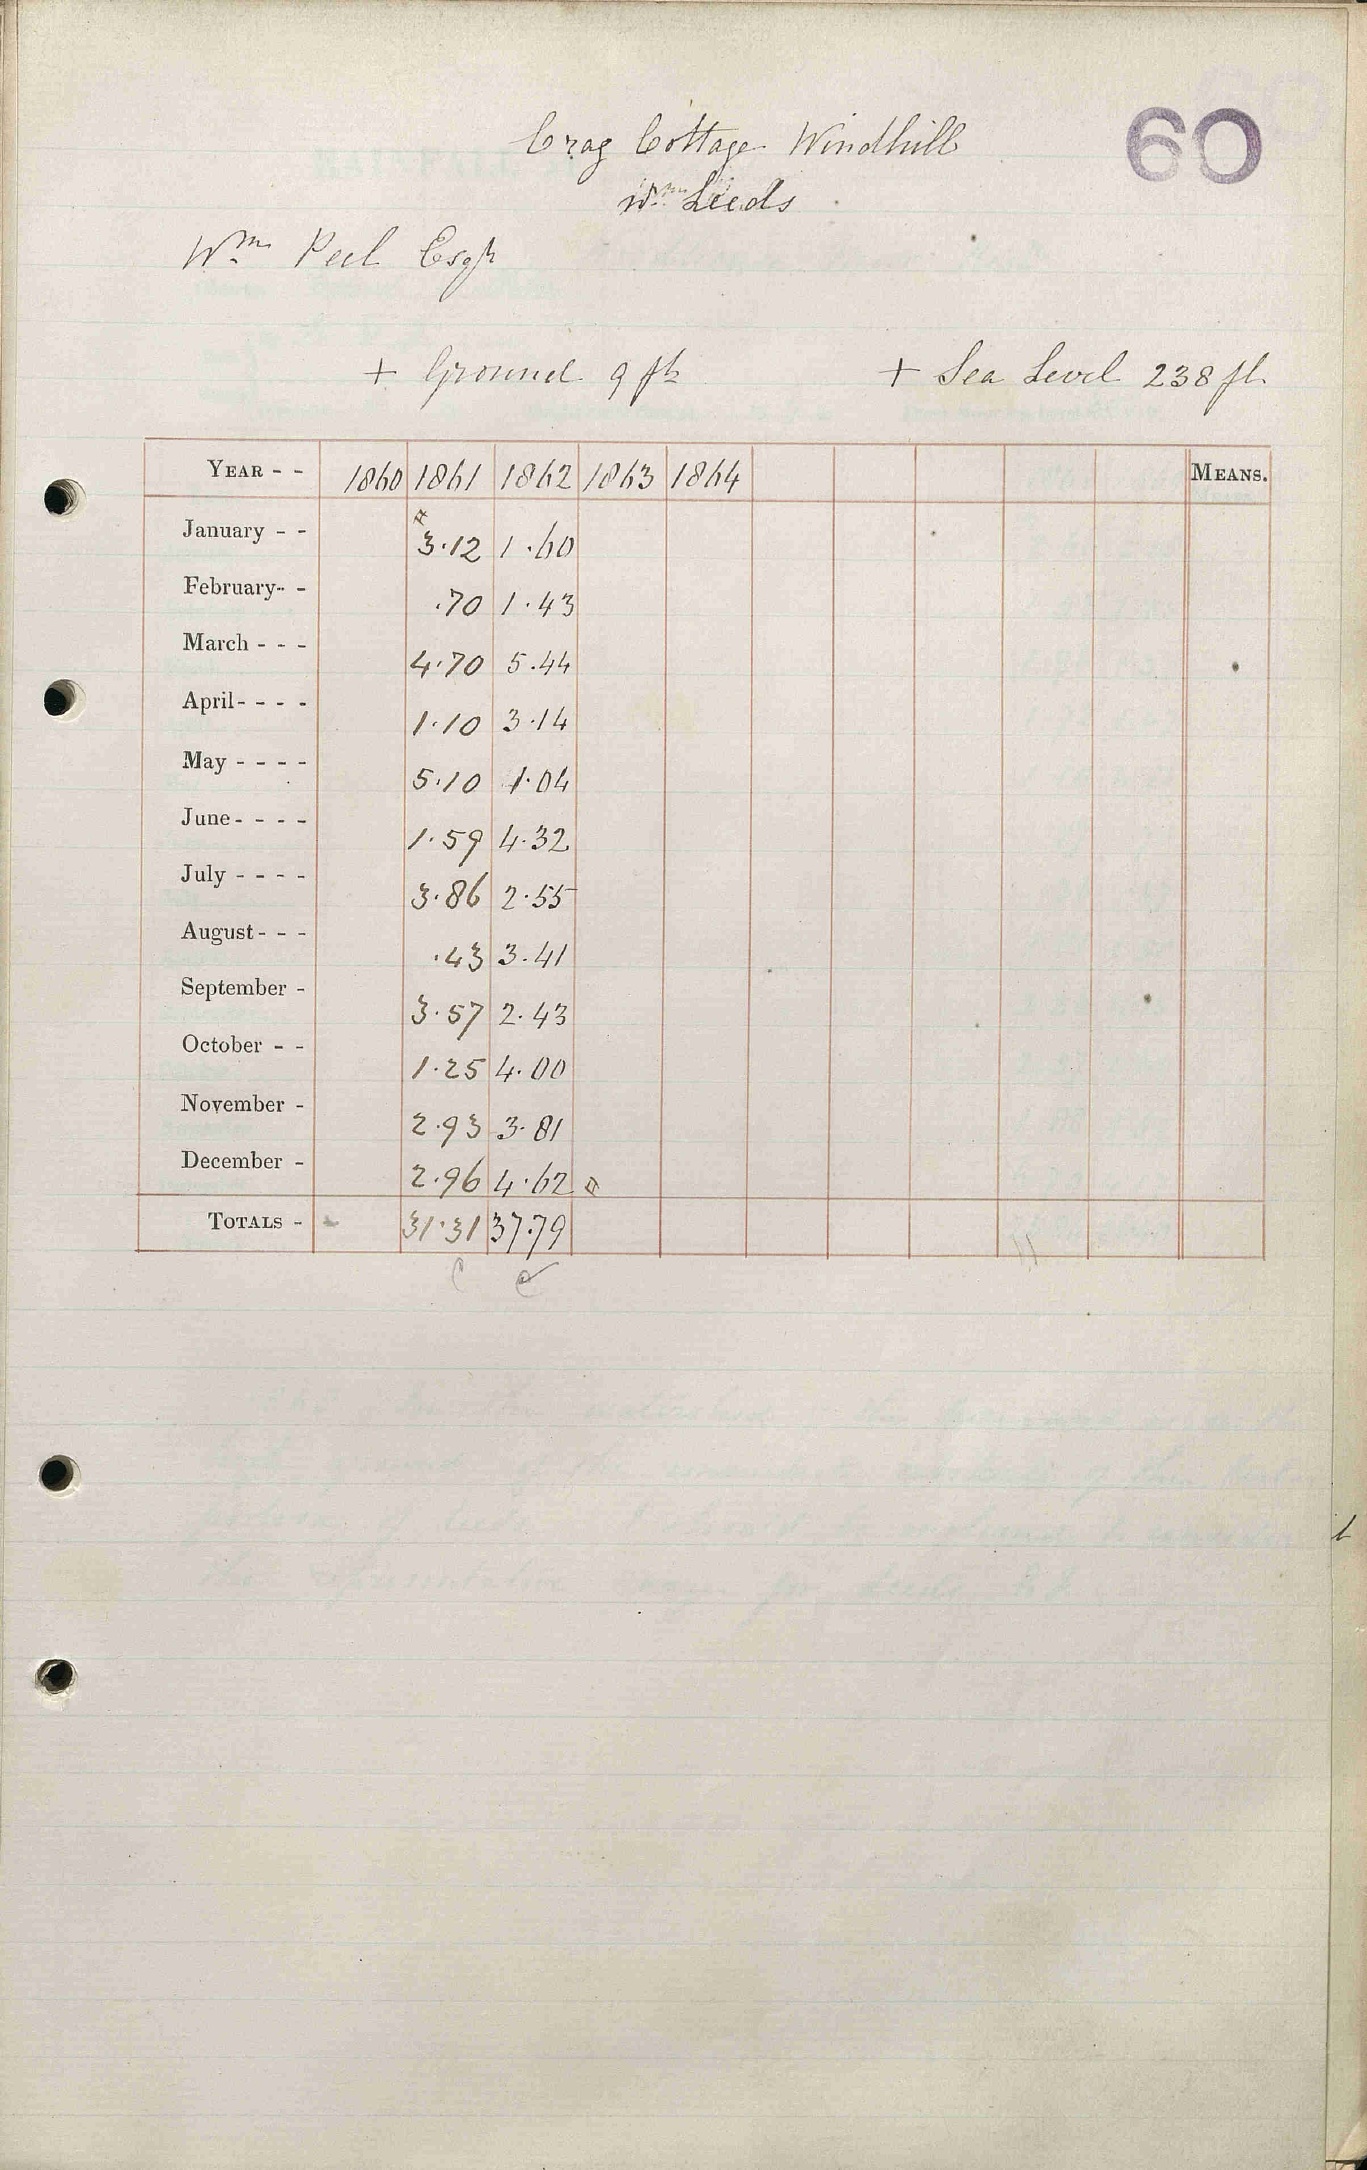 60
Crag Cottage Windhill
Leeds
Wm Peel Esqr
+ Ground 9 ft + Sea Level 238 ft
YEAR - - 1860 1861 1862 1863 1864 MEANS.
January - - 3.12 1.60
February- - .70 1.43
March - - - 4.70 5.44
April- - - - 1.10 3.14
May - - - - 5.10 1.04
June- - - - 1.59 4.32
July - - - - 3.86 2.55
August- - - .43 3.41
September - 3.57 2.43
October - - 1.25 4.00
November - 2.93 3.81
December - 2.96 4.62
TOTALS - 31.31 37.79